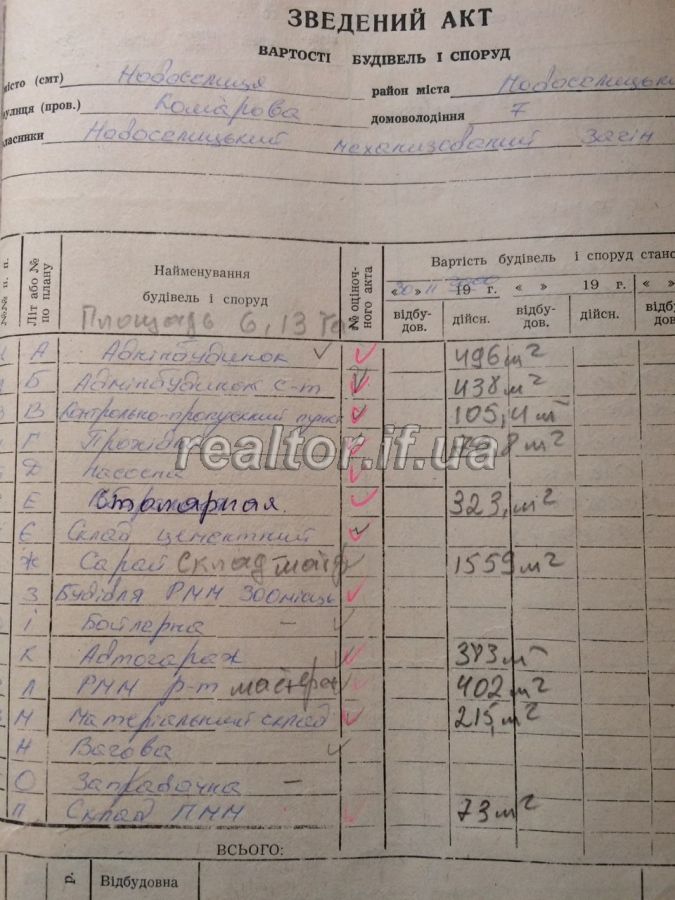 ЗВЕДЕНИЙ АКТ
ВАРТОСТІ БУДІВЕЛЬ І СПОРУД
місто (смт) Новоселиця район міста Новоселицьки
вулиця (пров.) Комарова домоволодіння 7
власники Новоселицький механізований загін
№№ п. п.
Літ або № по плану
Найменування будівель і споруд
№ оціночного акта
Вартість будівель і споруд стано
« 30 » 11 19 г. « » 19 г. « »
відбудов. дійсн. відбудов. дійсн. відбудов.
Площадь 6,13 га
А Адмінбудинок 496 м²
Б Адмінбудинок с-т 438 м²
В Контрольно-пропускний пункт 105,4 м²
Г 8 м²
realtor.if.ua
Д насосна
Е Столярная. 323, м²
Є Склад цементний
Ж Сарай склад 1559 м²
З Будівля РММ 300
І Бойлерна –
К Автогараж 343 м²
Л РММ р-т 402 м²
М Матеріальний склад 215, м²
Н Вагова
О Заправочна –
П Склад ПММ 73 м²
ВСЬОГО:
р. Відбудовна